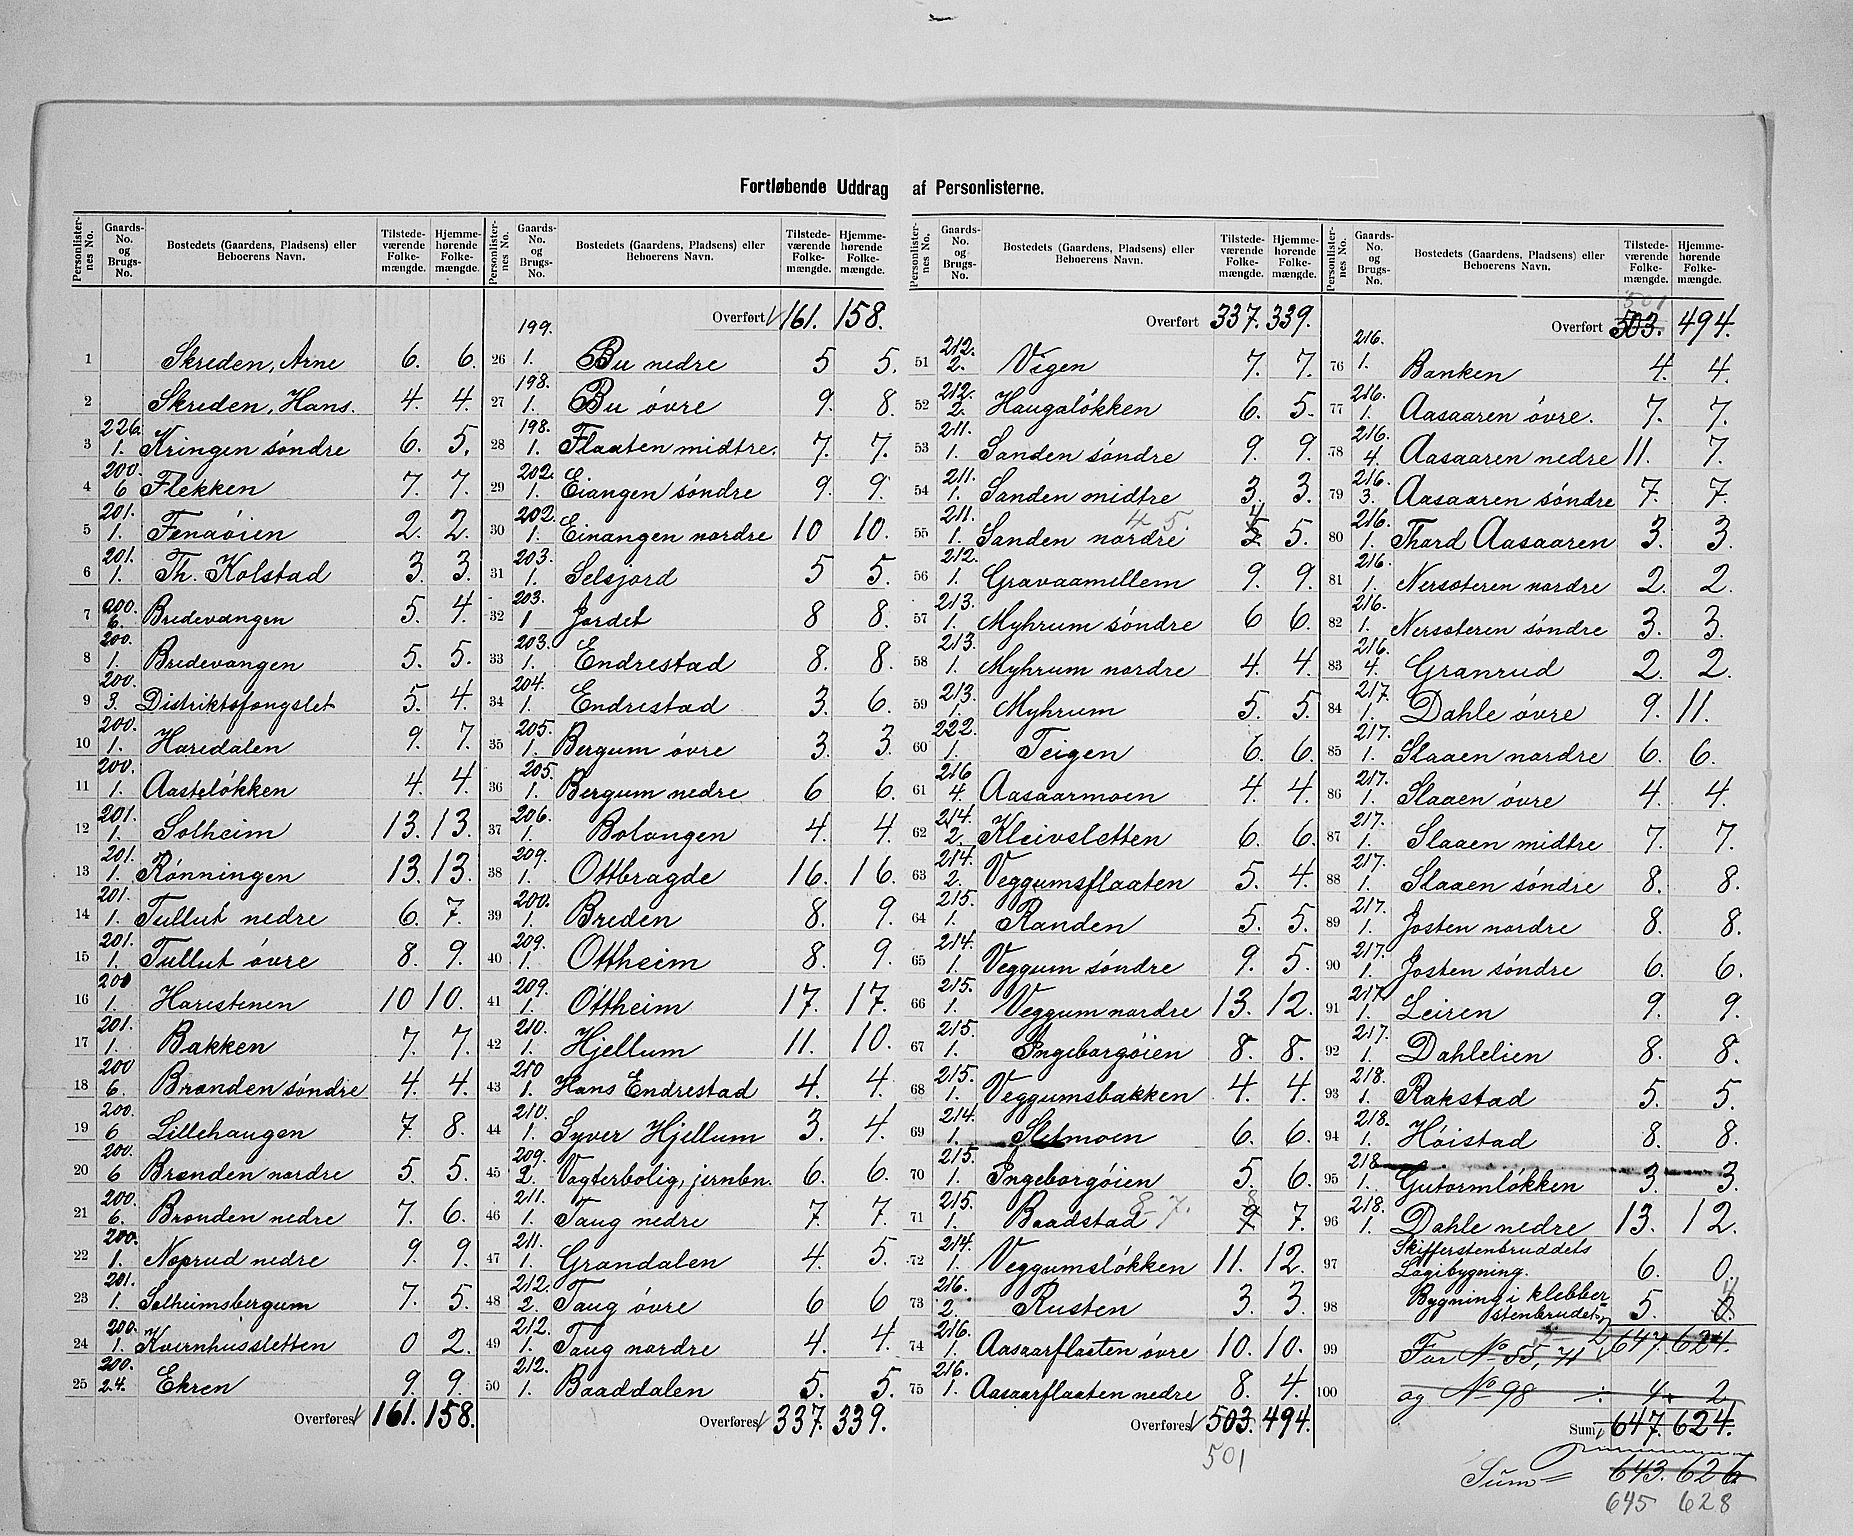 Fortløbende Uddrag af Personlisterne.
Personlisternes No. | Gaards-No. og Brugs-No. | Bostedets (Gaardens, Pladsens) eller Beboerens Navn. | Tilstedeværende Folkemængde. | Hjemmehørende Folkemængde.
1 | Skreden, Arne | 6. | 6.
2 | Skreden, Hans. | 4. | 4.
3 | 226. 1. | Kringen söndre | 6. | 5.
4 | 200. 6 | Flekken | 7. | 7.
5 | 201. 1. | Fenaöien | 2. | 2.
6 | 201. 1. | Th. Kolstad | 3. | 3.
7 | 200. 6. | Bredevangen | 5. | 4.
8 | 200. 1. | Bredevangen | 5. | 5.
9 | 200. 3. | Distriktsfængslet | 5. | 4.
10 | 200. 1. | Haredalen | 9. | 7.
11 | 200. 1. | Aasteløkken | 4. | 4.
12 | 201. 1. | Solheim | 13. | 13.
13 | 201. 1. | Rønningen | 13. | 13.
14 | 201. 1. | Tullut nedre | 6. | 7.
15 | 201. 1. | Tullut övre | 8. | 9.
16 | 200 1. | Harestenen | 10 | 10.
17 | 201. 1. | Bakken | 7. | 7.
18 | 200 6. | Brænden söndre | 4. | 4.
19 | 200. 6 | Lillehaugen | 7. | 8.
20 | 200. 6 | Brænden nordre | 5. | 5.
21 | 200. 6. | Brænden nedre | 7. | 6.
22 | 200. 1. | Noprud nedre | 9. | 9.
23 | 201. 1. | Solheimsbergum | 7. | 5.
24 | 200. 1. | Kvernhussletten | 0 | 2.
25 | 200. 24. | Ekren | 9. | 9.
Overføres | 161. | 158.
Personlisternes No. | Gaards-No. og Brugs-No. | Bostedets (Gaardens, Pladsens) eller Beboerens Navn. | Tilstedeværende Folkemængde. | Hjemmehørende Folkemængde.
Overført | 161. | 158.
26 | 199. 1. | Bu nedre | 5 | 5.
27 | 198. 1. | Bu övre | 9. | 8.
28 | 198. 1. | Flaaten midtre. | 7. | 7.
29 | 202. 1. | Eiangen söndre | 9. | 9.
30 | 202. 1. | Einangen nordre | 10 | 10.
31 | 203. 1. | Selsjord | 5 | 5.
32 | 203. 1 | Jordet | 8 | 8.
33 | 203. 1. | Endrestad | 8. | 8.
34 | 204. 1. | Endrestad | 3. | 6.
35 | 205. 1. | Bergum övre | 3. | 3.
36 | 205. 1. | Bergum nedre | 6 | 6.
37 | 206. 1. | Bolongen | 4. | 4.
38 | 209. 1. | Ottbragde | 16. | 16.
39 | 200. 1. | Breden | 8. | 9.
40 | 209. 1. | Ottheim | 8. | 9.
41 | 209. 1. | Ottheim | 17. | 17.
42 | 210. 1. | Hjellum | 11. | 10.
43 | 210 1. | Hans Endrestad | 4. | 4.
44 | 210. 1. | Syver Hjellum | 3. | 4.
45 | 209. 2. | Vogterbolig, jernbn. | 6. | 6.
46 | 211. 1. | Taug nedre | 7. | 7.
47 | 211. 1. | Grandalen | 4. | 5.
48 | 212. 2. | Taug övre | 6 | 6
49 | 212. 1. | Taug nordre | 4. | 4.
50 | 212. 1. | Baaddalen | 5. | 5.
Overføres | 337. | 339.
Personlisternes No. | Gaards-No. og Brugs-No. | Bostedets (Gaardens, Pladsens) eller Beboerens Navn. | Tilstedeværende Folkemængde. | Hjemmehørende Folkemængde.
Overført | 337. | 339.
51 | 212. 2. | Vigen | 7. | 7.
52 | 212. 2. | Haugaløkken | 6. | 5.
53 | 211. 1. | Sanden söndre | 9. | 9.
54 | 211. 1. | Sanden midtre | 3. | 3.
55 | 211. 1. | Sanden nordre 4 5. | 4 | 5.
56 | 212. 1. | Gravaamellem | 9. | 9.
57 | 213. 1. | Myhrum söndre | 6 | 6.
58 | 213. 1. | Myhrum nordre | 4. | 4.
59 | 213. 1. | Myhrum | 5. | 5.
60 | 222. 1. | Teigen | 6. | 6.
61 | 216 4. | Aasaarmoen | 4. | 4.
62 | 214. 2. | Kleivsletten | 6. | 6.
63 | 214. 2. | Veggumsflaaten | 5. | 4.
64 | 215. 1. | Randen | 5. | 5.
65 | 214. 1. | Veggum söndre | 9. | 5.
66 | 215. 1. | Veggum nordre | 13. | 12.
67 | 215. 1. | Ingeborgöien | 8. | 8.
68 | 215. 1. | Veggumsbakken | 4. | 4.
69 | 214. 1. | Sletmoen | 6. | 6.
70 | 215. 1. | Ingeborgöien | 5. | 6.
71 | 215. 1. | Baadstad 8 7. | 8 9. | 7.
72 | 214. 1. | Veggumsløkken | 11. | 12.
73 | 216. 2. | Rusten | 3. | 3.
74 | 216. 1. | Aasaarflaaten övre | 10. | 10.
75 | 216. 1. | Aasaarflaaten nedre | 8. | 4.
Overføres | 503. | 494.
501
Personlisternes No. | Gaards-No. og Brugs-No. | Bostedets (Gaardens, Pladsens) eller Beboerens Navn. | Tilstedeværende Folkemængde. | Hjemmehørende Folkemængde.
501
Overført | 503. | 494.
76 | 216. 1. | Banken | 4. | 4.
77 | 216. 1. | Aasaaren övre. | 7. | 7.
78 | 216. 4. | Aasaaren nedre | 11. | 7.
79 | 216. 3. | Aasaaren söndre | 7. | 7.
80 | 216. 1. | Thord Aasaaren | 3. | 3.
81 | 216. 1. | Nersæteren nordre | 2. | 2.
82 | 216. 1. | Nersæteren söndre | 3. | 3.
83 | 216. 4. | Granrud | 2. | 2.
84 | 217. 1. | Dahle övre | 9. | 11.
85 | 217. 1. | Slaaen nordre | 6. | 6.
86 | 217. 1. | Slaaen övre | 4. | 4.
87 | 217. 1. | Slaaen midtre | 7. | 7.
88 | 217. 1. | Slaaen söndre | 8. | 8.
89 | 217. 1. | Josten nordre | 8. | 8.
90 | 217. 1. | Josten söndre | 6. | 6.
91 | 217 1. | Leiren | 9. | 9.
92 | 217. 1. | Dahlelien | 8. | 8.
93 | 218. 1. | Rakstad | 5. | 5.
94 | 218. 1. | Höistad | 8. | 8.
95 | 218 1. | Gutormløkken | 3. | 3.
96 | 218. 1. | Dahle nedre | 13. | 12.
97 | Skifferstenbruddets Logibygning. | 6. | 0.
98 | Bygning i klebberstenbrudet | 5. | 4
99 | For No 55, 71 | 647. | 624.
100 | og No 98 ÷ | 4. | 2
Sum | 647. | 624.
Sum = 643. 626
645 628